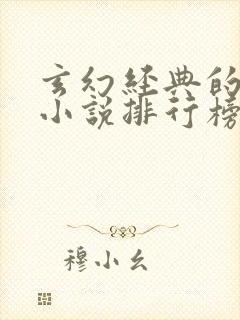 玄幻经典的
小说排行榜
穆小幺